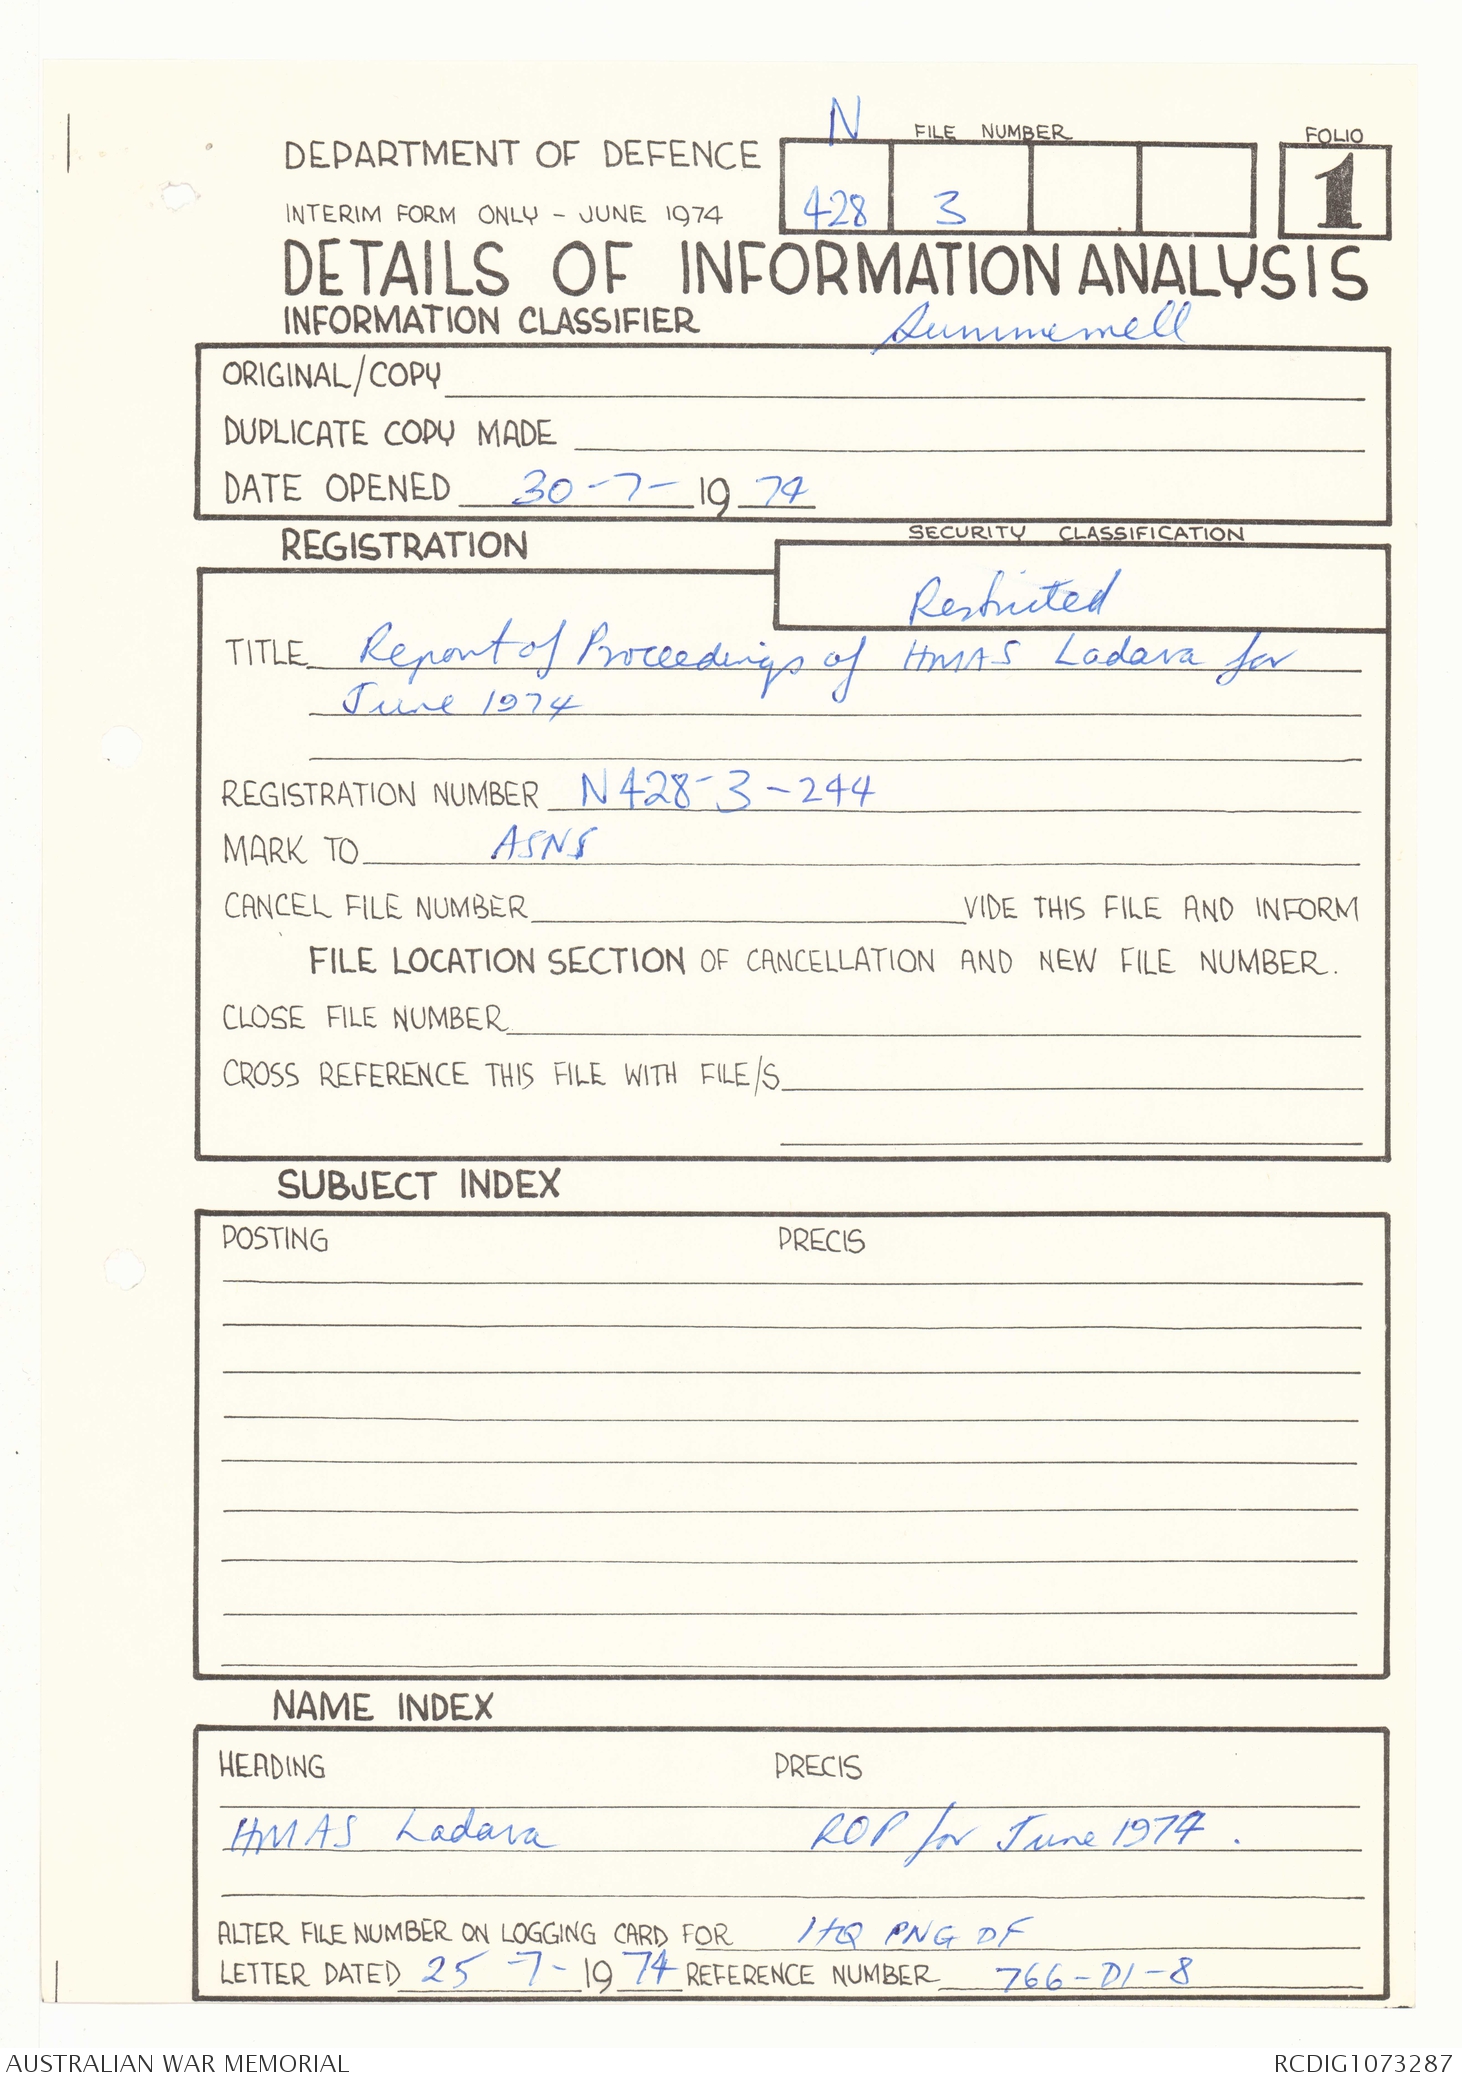 N FILE NUMBER FOLIO
DEPARTMENT OF DEFENCE
428 3 1
INTERIM FORM ONLY - JUNE 1974
DETAILS OF INFORMATION ANALYSIS
INFORMATION CLASSIFIER
ORIGINAL/COPY
DUPLICATE COPY MADE
DATE OPENED 30-7-1974
REGISTRATION
SECURITY CLASSIFICATION
Restricted
TITLE Report of Proceedings of HMAS Ladava for
June 1974
REGISTRATION NUMBER N428-3-244
MARK TO ASNS
CANCEL FILE NUMBER VIDE THIS FILE AND INFORM
FILE LOCATION SECTION OF CANCELLATION AND NEW FILE NUMBER.
CLOSE FILE NUMBER
CROSS REFERENCE THIS FILE WITH FILE/S
SUBJECT INDEX
POSTING PRECIS
NAME INDEX
HEADING PRECIS
HMAS Ladava ROP for June 1974.
ALTER FILE NUMBER ON LOGGING CARD FOR HQ PNG DF
LETTER DATED 25-7-1974 REFERENCE NUMBER 766-D1-8
AUSTRALIAN WAR MEMORIAL RCDIG1073287